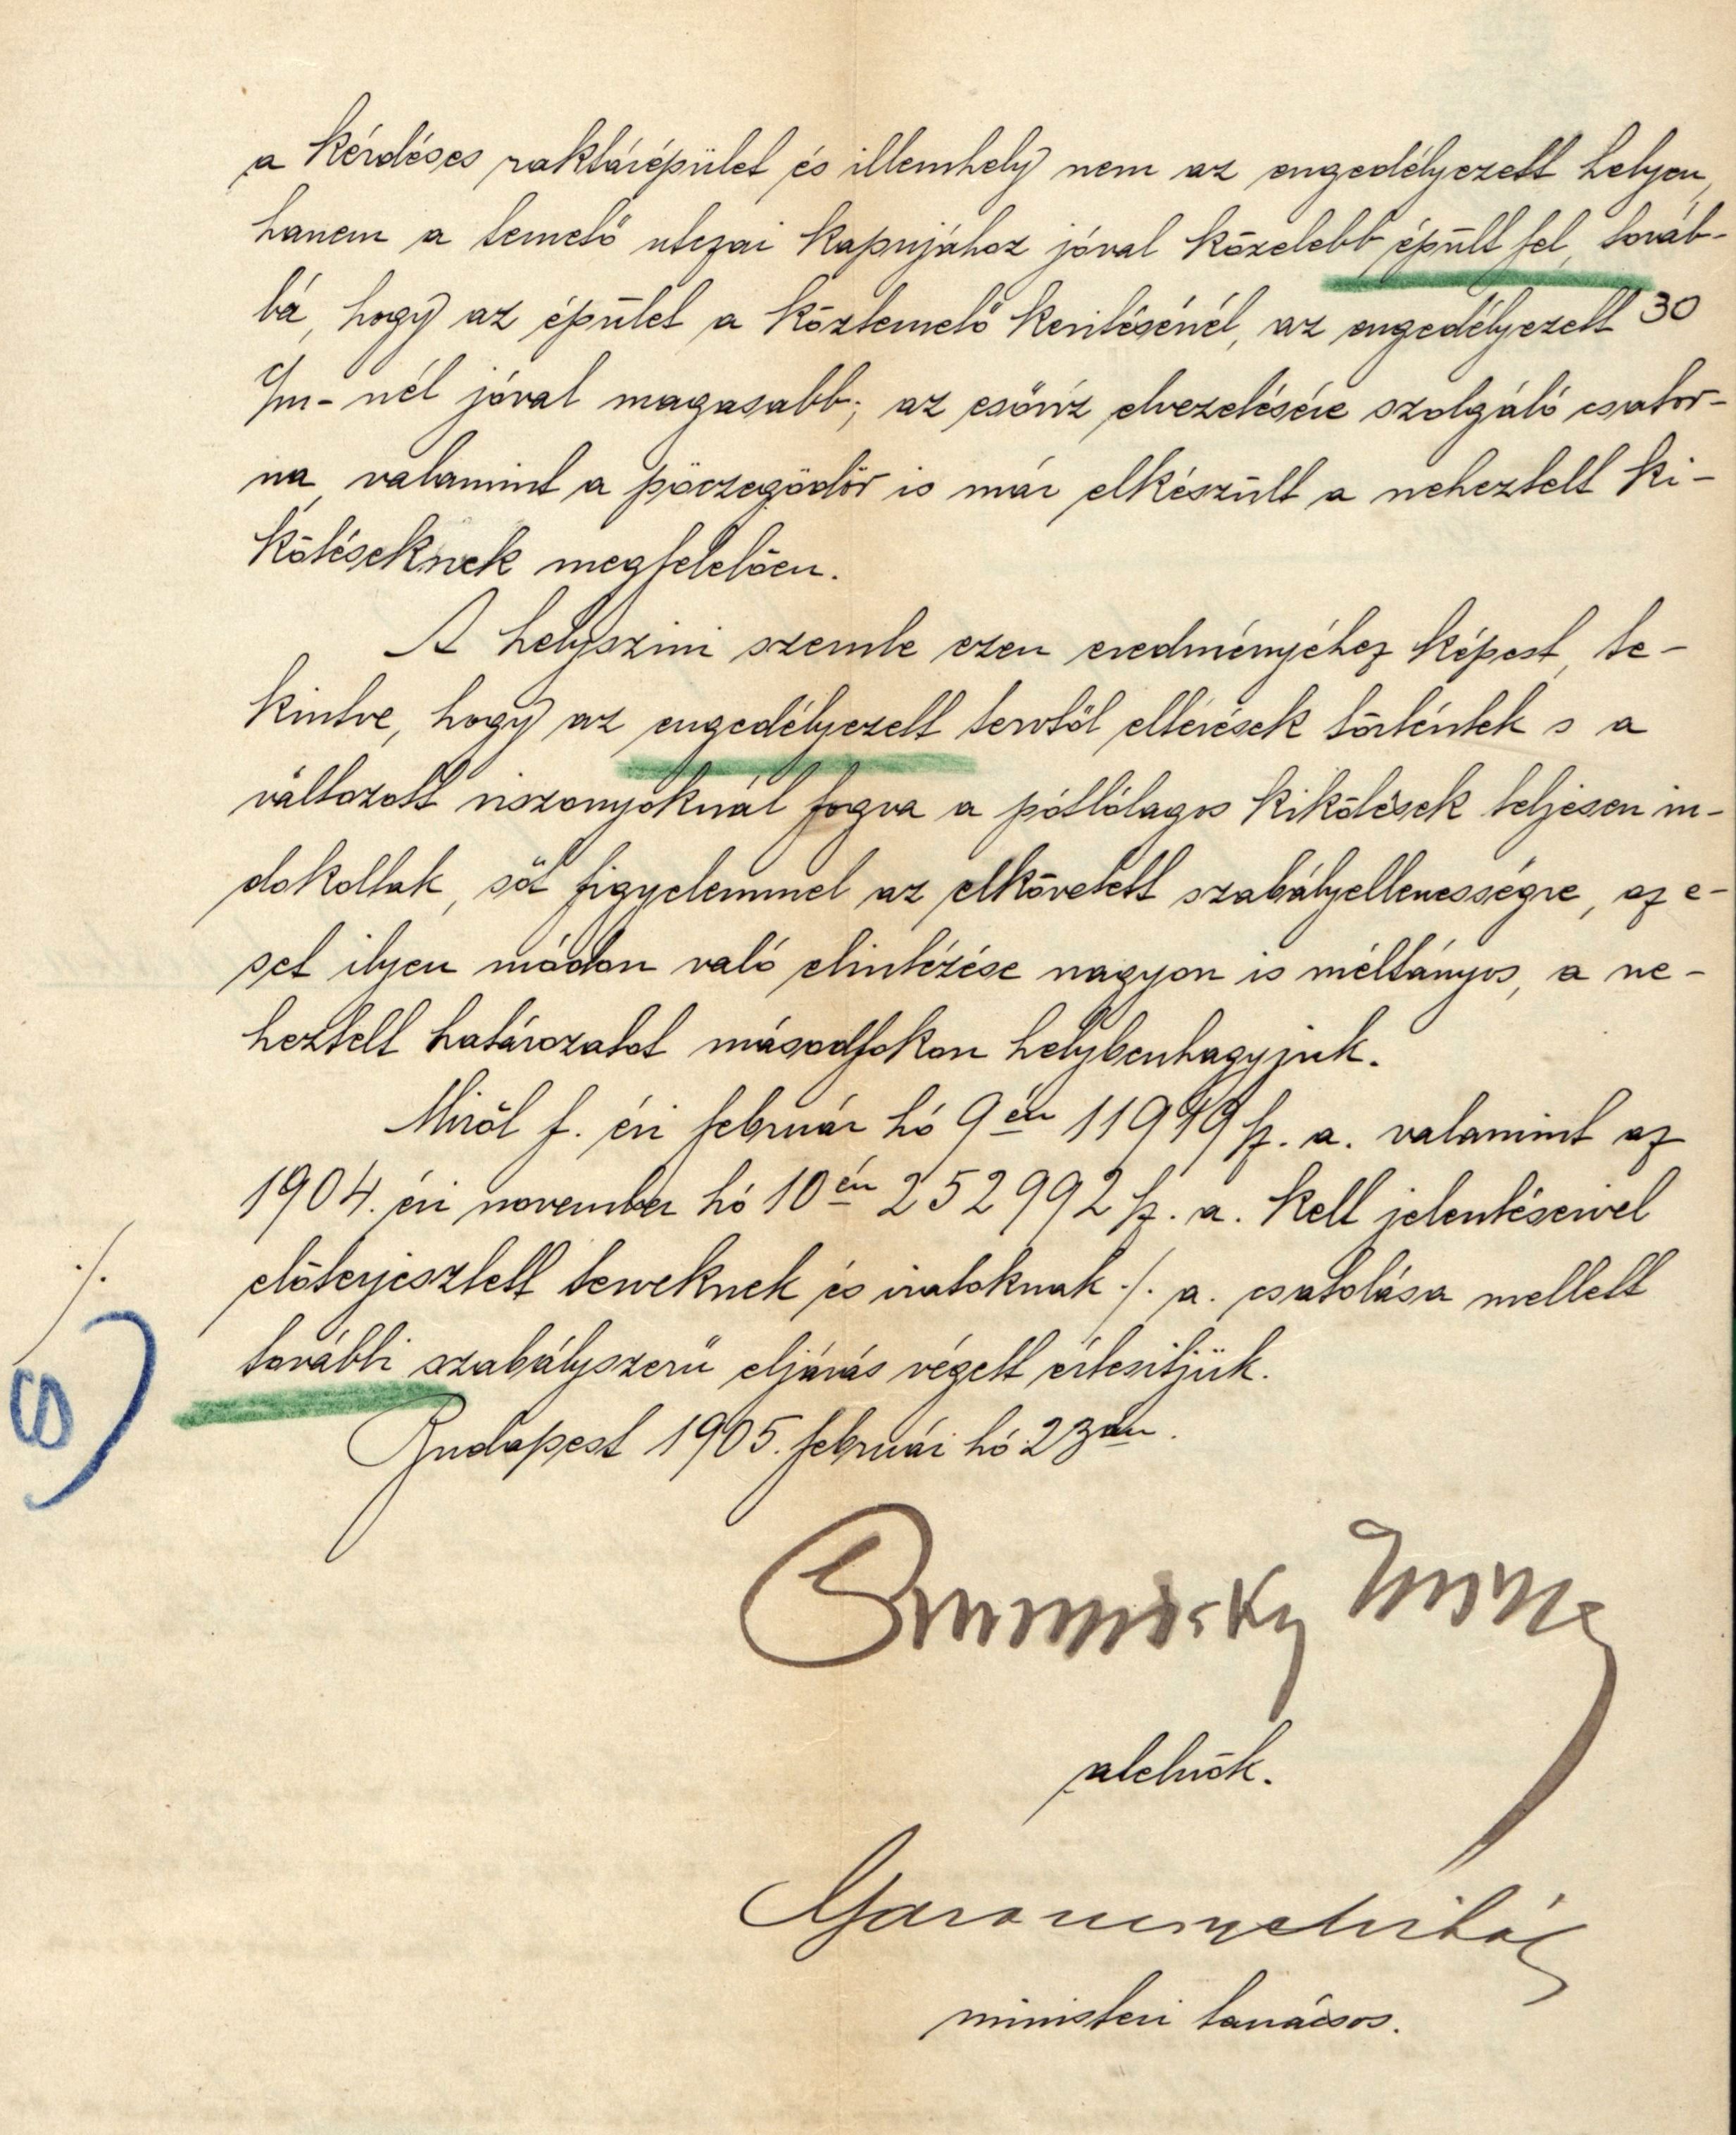 a kérdéses raktárépület és illemhely nem az engedélyezett helyen,
hanem a temető utczai kapujához jóval közelebb épült fel, továb-
bá, hogy az épület a köztemető kerítésénél, az engedélyezett 30
%m-nél jóval magasabb; az esővíz elvezetésére szolgáló csator-
na, valamint a pöczegödör is már elkészült a neheztelt ki-
kötéseknek megfelelően.
A helyszini szemle ezen eredményéhez képest, te-
kintve, hogy az engedélyezett tervtől eltérések történtek s a
változott viszonyoknál fogva a pótlólagos kikötések teljesen in-
dokoltak, sőt figyelemmel az elkövetett szabályellenességre, az e-
set ilyen módon való elintézése nagyon is méltányos, a ne-
heztelt határozatot másodfokon helybenhagyjuk.
Miről f. évi február hó 9én 11949 sz. a. valamint az
1904. évi november hó 10én 252992 sz. a. kelt jelentéseivel
előterjesztett terveknek és iratoknak ·/. a. csatolása mellett
·/.
további szabályszerű eljárás végett értesitjük.
8)
Budapest 1905. február hó 23án.
alelnök.
ministeri tanácsos.